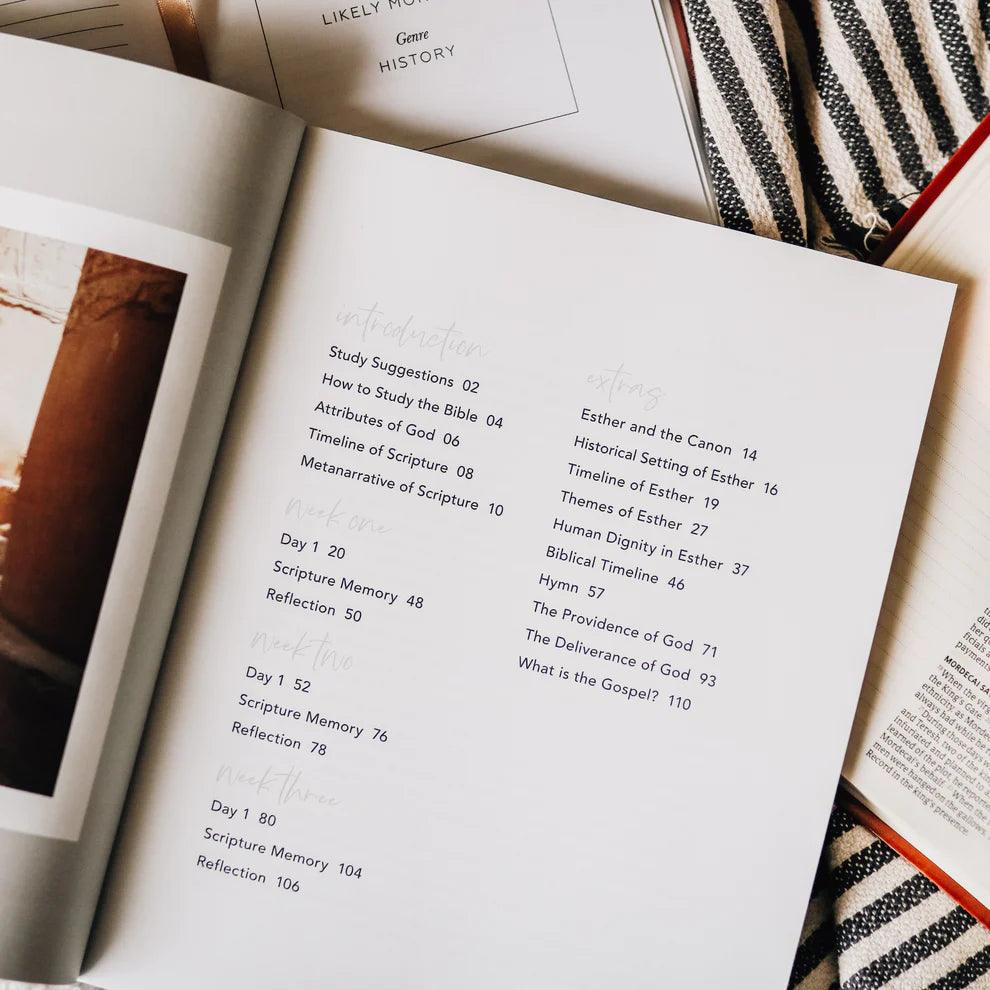 LIKELY
Genre
HISTORY
introduction
Study Suggestions 02
How to Study the Bible 04
Attributes of God 06
Timeline of Scripture 08
Metanarrative of Scripture 10
week one
Day 1 20
Scripture Memory 48
Reflection 50
week two
Day 1 52
Scripture Memory 76
Reflection 78
week three
Day 1 80
Scripture Memory 104
Reflection 106
extras
Esther and the Canon 14
Historical Setting of Esther 16
Timeline of Esther 19
Themes of Esther 27
Human Dignity in Esther 37
Biblical Timeline 46
Hymn 57
The Providence of God 71
The Deliverance of God 93
What is the Gospel? 110
her
payments
MORDECAI
When the
the King's Gate.
ethnicity, as
always had while he
During those days
and Teresh, two of the
infuriated and planned to
learned of the plot, he
Mordecai's behalf. When the
men were hanged on the gallows.
Record in the king's presence.